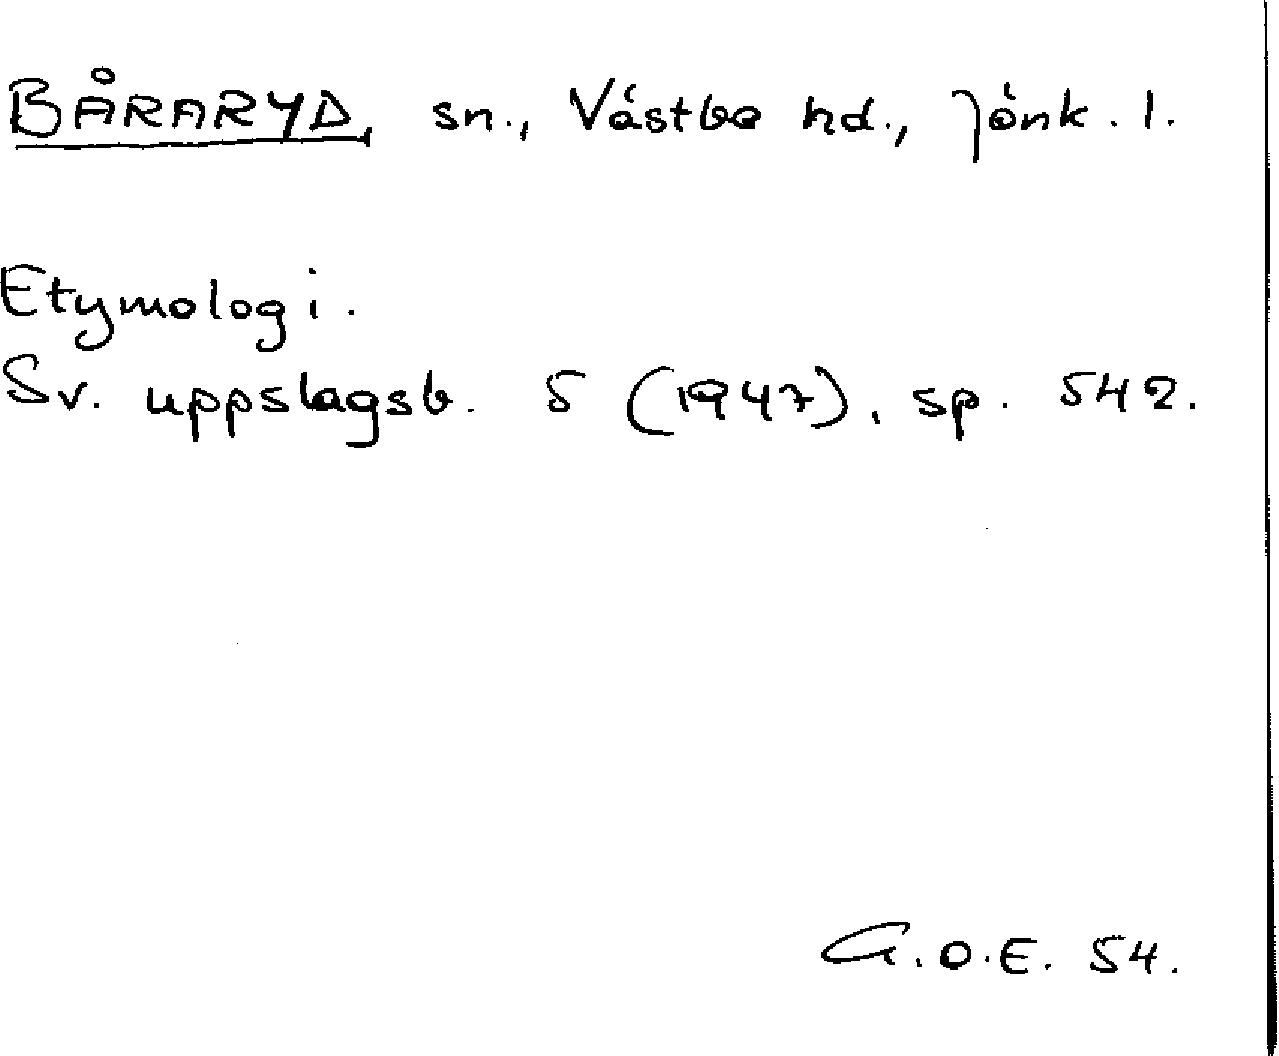 BÅRARYD, sn., Västbo hd., Jönk. l.
Etymologi.
Sv. uppslagsb. 5 (1947), sp. 542.
G.O.E. 54.